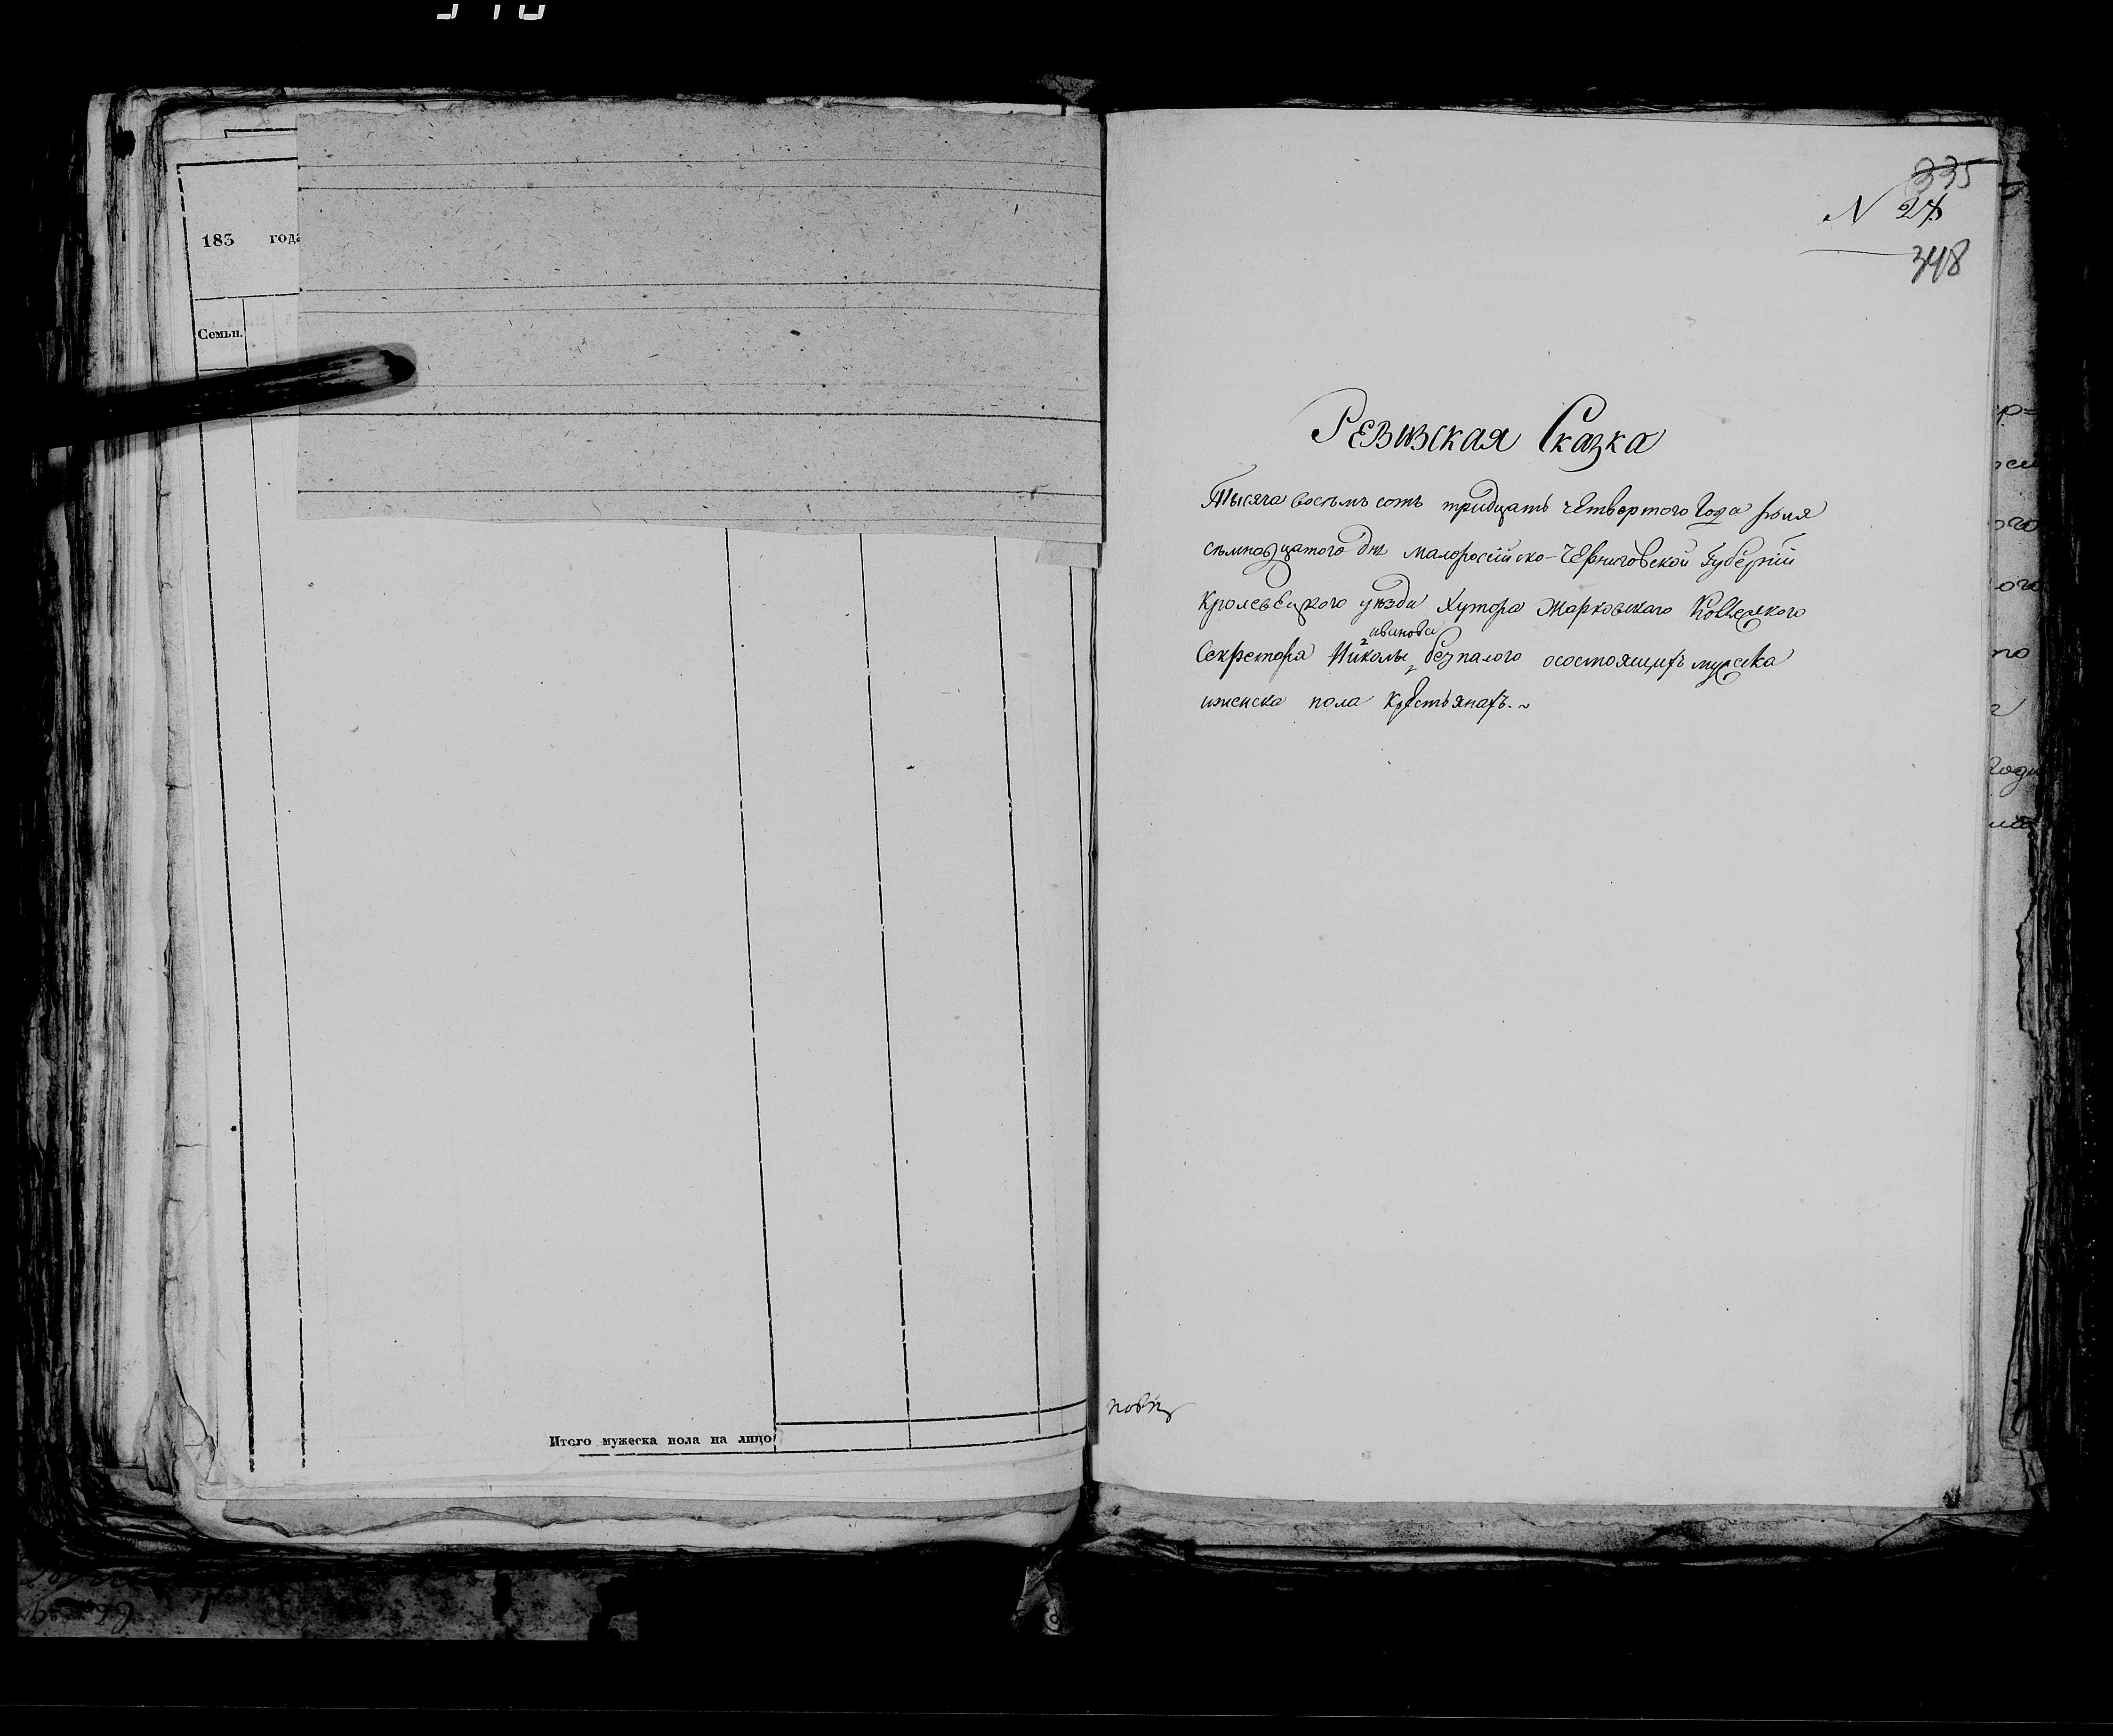 183 года
Семьи.
Итого мужеска пола на лицо
335
N 24
348
Ревизская Сказка
Тысяча восемь сотъ тридцать четвертого Года
семнадцатого дня малоросійско-Черниговской Губерніи
Кролевецкого уезда Хутора Марковского
иванова
Секретаря Николы безпалого осостоящихъ мужеска
иженска пола крестьянахъ.~